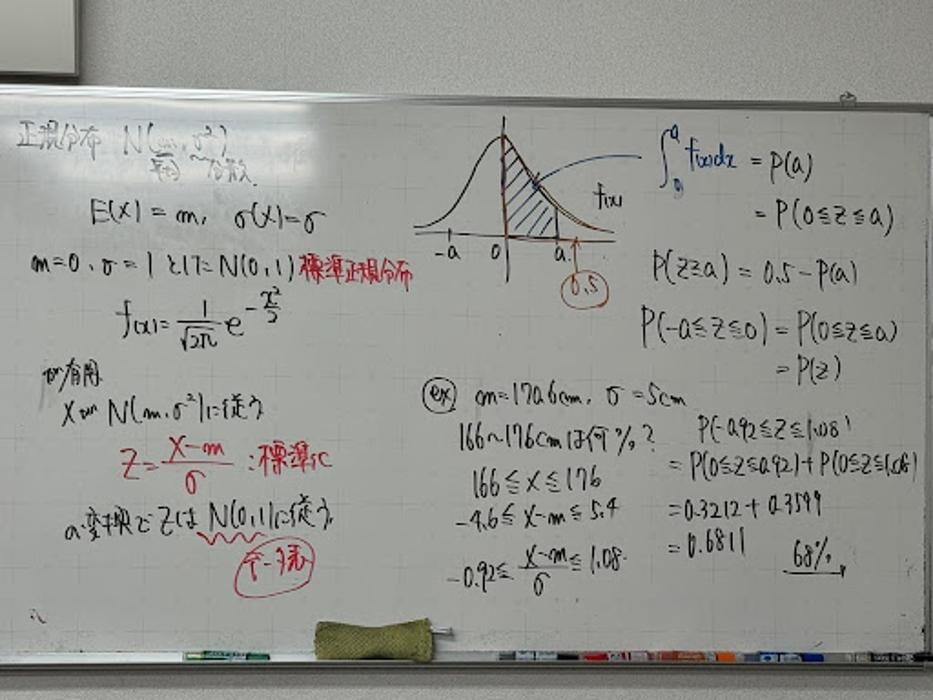 正規分布 N(m, σ²)
平均 分散
E(X) = m, σ(X) = σ
m=0, σ=1 として N(0,1) 標準正規分布
f(x) = 1/√2π e^(-x²/2)
が有用
X が N(m, σ²)に従う
Z = (X-m)/σ : 標準化
の変換で Zは N(0,1)に従う
f(x)
-a 0 a
0.5
∫₀ᵃ f(x)dx = P(a)
= P(0≦Z≦a)
P(Z≧a) = 0.5 - P(a)
P(-a≦Z≦0) = P(0≦Z≦a)
= P(z)
ex m=170.6cm, σ=5cm
166~176cmは何%?
166≦X≦176
-4.6≦X-m≦5.4
-0.92≦(X-m)/σ≦1.08
P(-0.92≦Z≦1.08)
= P(0≦Z≦0.92)+P(0≦Z≦1.08)
= 0.3212 + 0.3599
= 0.6811
68%